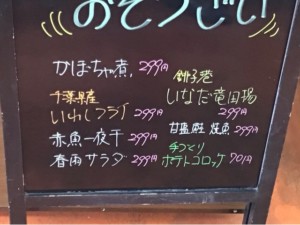 おそうざい
かぼちゃ煮 299円
千葉県産
いわしフライ 299円
赤魚一夜干 299円
春雨サラダ 299円
銚子港
いなだ竜田揚
299円
甘塩鮭 焼魚 299円
手づくり
ポテトコロッケ 70円